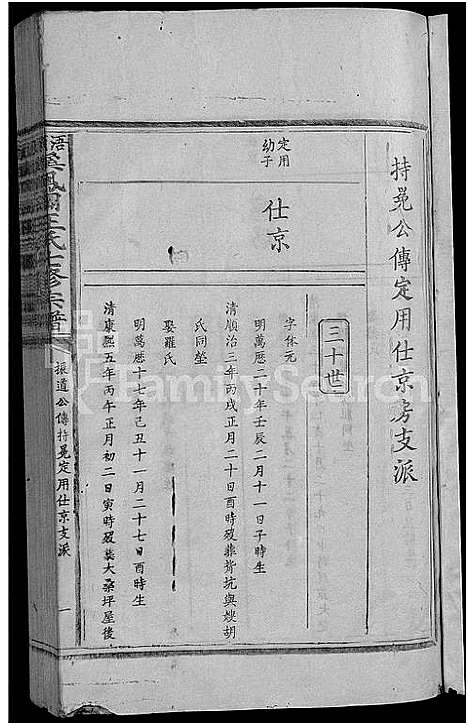 持晃公傳定用仕京房支派
三十世
定用
幼子
仕京
字体元
明萬厯二十年壬辰二月十一日子時生
清順治三年丙戌正月二十日酉時歿葬坑與嫂胡
氏同塋
娶羅氏
明萬厯十七年己丑十一月二十七日酉時生
清康熙五年丙午正月初二日寅時歿葬大桑坪屋後
氏七修宗譜
振道公傳持晃定用仕京支派
一
FamilySearch